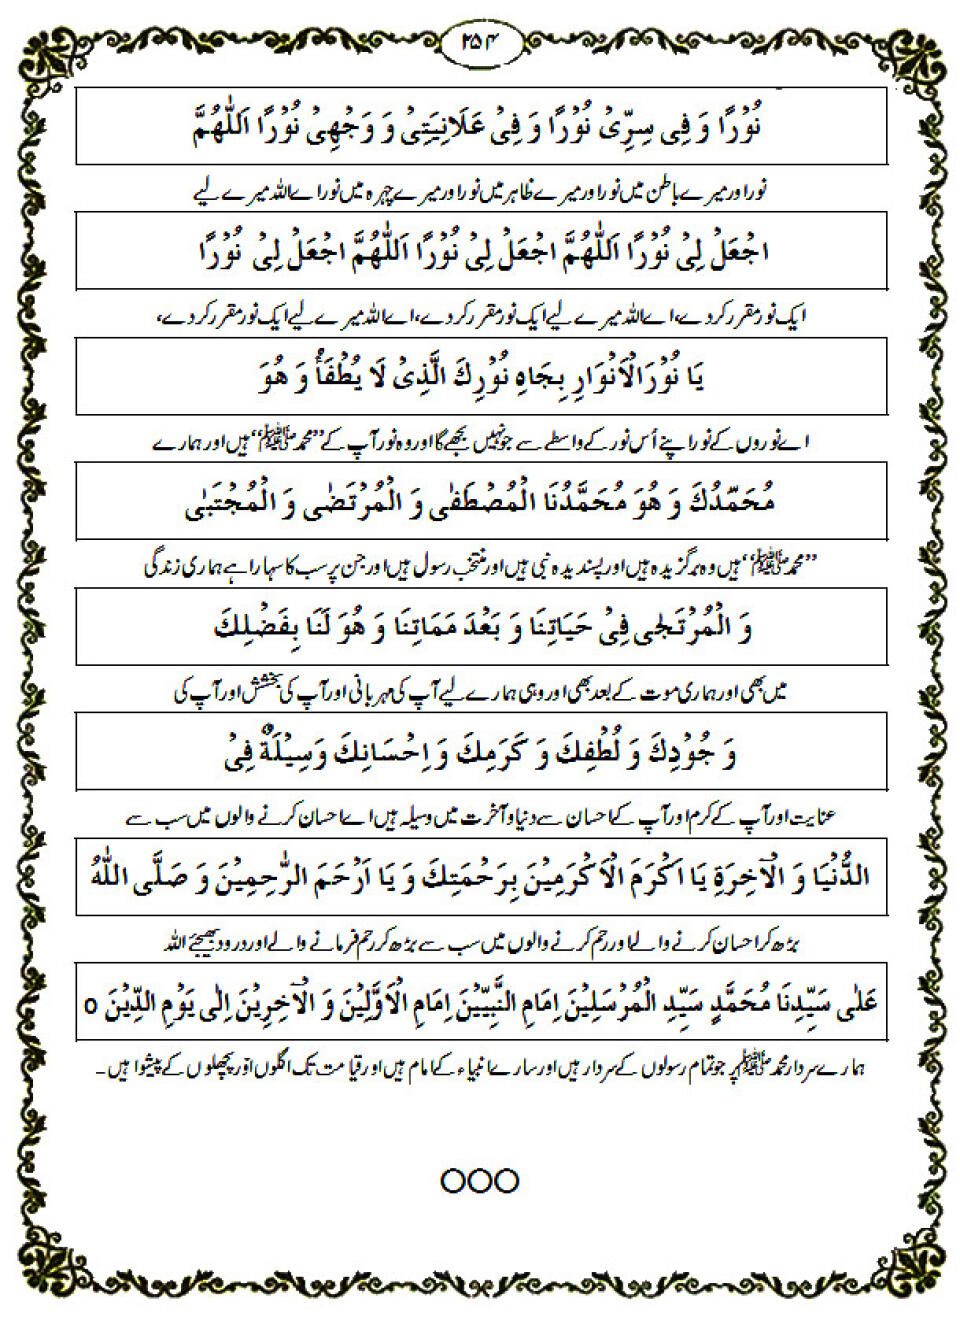 ۲۵۴
نُوْرًا وَ فِي سِرِّیْ نُوْرًا وَ فِیْ عَلَانِيَتِیْ وَ وَجْهِیْ نُوْرًا اَللّٰهُمَّ
نور اور میرے باطن میں نور اور میرے ظاہر میں نور اور میرے چہرہ میں نور اے اللہ میرے لیے
اجْعَلْ لِیْ نُوْرًا اَللّٰهُمَّ اجْعَلْ لِیْ نُوْرًا اَللّٰهُمَّ اجْعَلْ لِیْ نُوْرًا
ایک نور مقرر کر دے، اے اللہ میرے لیے ایک نور مقرر کر دے، اے اللہ میرے لیے ایک نور مقرر کر دے،
يَا نُوْرَالْاَنْوَارِ بِجَاهِ نُوْرِكَ الَّذِیْ لَا يُطْفَأُ وَ هُوَ
اے نوروں کے نور اپنے اُس نور کے واسطے سے جو نہیں بجھے گا اور وہ نور آپ کے ’’محمد ﷺ‘‘ ہیں اور ہمارے
مُحَمَّدُكَ وَ هُوَ مُحَمَّدُنَا الْمُصْطَفٰی وَ الْمُرْتَضٰی وَ الْمُجْتَبٰی
’’محمد ﷺ‘‘ ہیں وہ برگزیدہ ہیں اور پسندیدہ نبی ہیں اور منتخب رسول ہیں اور جن پر سب کا سہارا ہے ہماری زندگی
وَ الْمُرْتَجٰی فِیْ حَيَاتِنَا وَ بَعْدَ مَمَاتِنَا وَ هُوَ لَنَا بِفَضْلِكَ
میں بھی اور ہماری موت کے بعد بھی اور وہی ہمارے لیے آپ کی مہربانی اور آپ کی بخشش اور آپ کی
وَ جُوْدِكَ وَ لُطْفِكَ وَ كَرَمِكَ وَ اِحْسَانِكَ وَسِيْلَةٌ فِیْ
عنایت اور آپ کے کرم اور آپ کے احسان سے دنیا و آخرت میں وسیلہ ہیں اے احسان کرنے والوں میں سب سے
الدُّنْيَا وَ الْآخِرَةِ يَا اَكْرَمَ الْاَكْرَمِيْنَ بِرَحْمَتِكَ وَ يَا اَرْحَمَ الرّٰحِمِيْنَ وَ صَلَّی اللّٰهُ
بڑھ کر احسان کرنے والے اور رحم کرنے والوں میں سب سے بڑھ کر رحم فرمانے والے اور درود بھیجئے اللہ
عَلٰی سَيِّدِنَا مُحَمَّدٍ سَيِّدِ الْمُرْسَلِيْنَ اِمَامِ النَّبِيِّيْنَ اِمَامِ الْاَوَّلِيْنَ وَ الْآخِرِيْنَ اِلٰی يَوْمِ الدِّيْنَ o
ہمارے سردار محمد ﷺ پر جو تمام رسولوں کے سردار ہیں اور سارے انبیاء کے امام ہیں اور قیامت تک اگلوں اور پچھلوں کے پیشوا ہیں۔
○○○